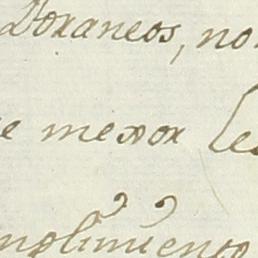 Doraneos, no
e menor le
mplimiento